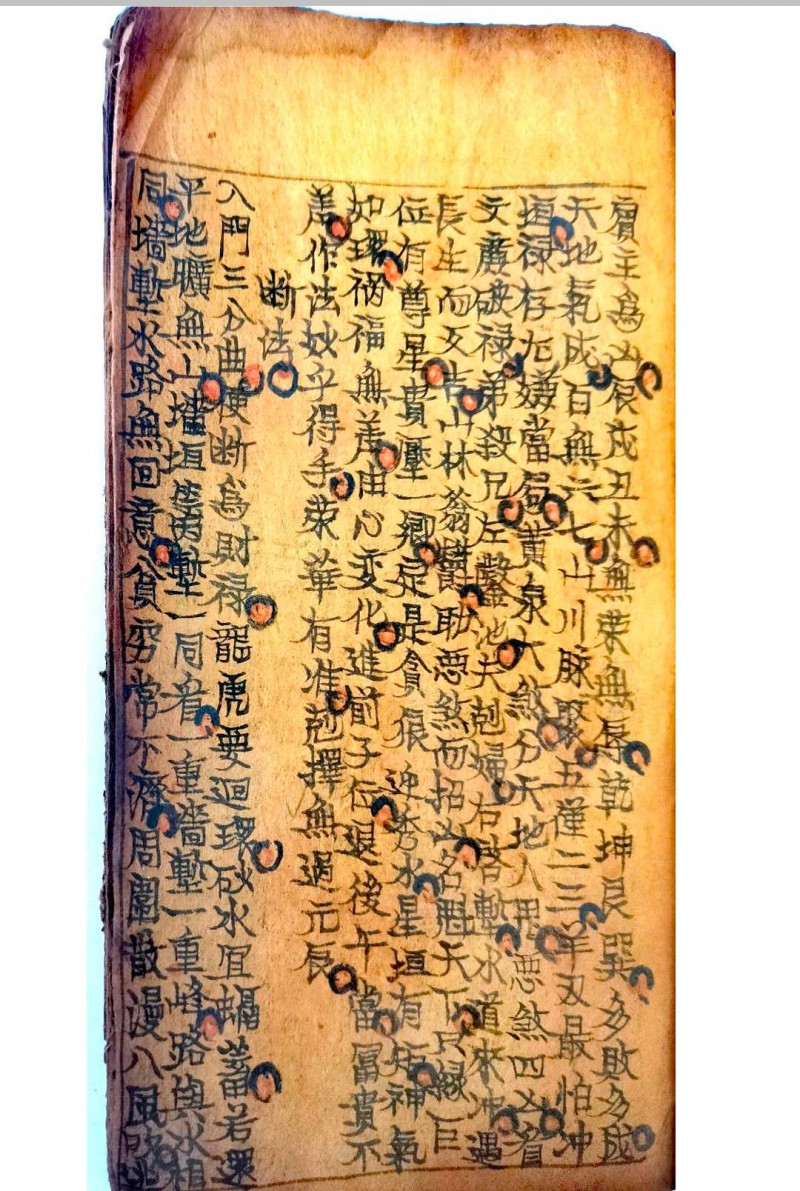 賓主為凶辰戌丑未無荣無辱乾坤艮巽多敗多成
天地氣成百無六七山川脉聚五僅二三羊刃最怕冲
垣禄存尤嫌當局黄泉大煞分天地人鬼惡煞四凶若
文廣破禄弟殺兄左鑿池夫尅婦右塔塹水道來冲遇
長生而反吉山林翁鬱助惡煞而招凶名魁天下只縁一巨
位有尊星貴壓一鄉定是貪狼迎秀水星垣有病神氣
如環祸福無差由心变化進前子位退後午當冨貴不
差作法妙乎得手荣華有准尅擇無過元辰
断法
入門三分曲便断為財禄龍虎要迴環砂水宜蟠蓄若還
平地曠無山墻垣塹一同看一重墻塹一重峰路與水相
同墻塹水路無回意貧穷常不濟周圍散漫八風